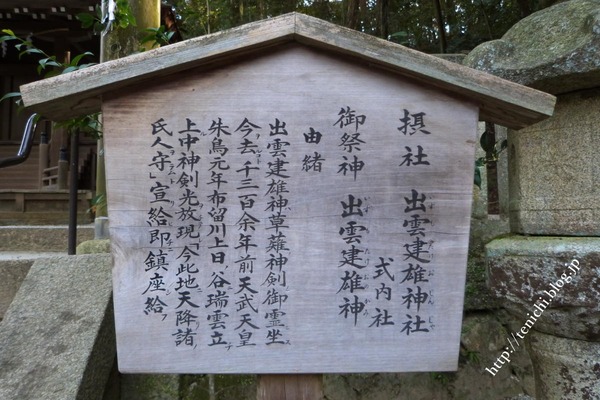 摂社 出雲建雄神社
式内社
御祭神 出雲建雄神
由緒
出雲建雄神草薙神剣御霊坐
今去千三百余年前天武天皇
朱鳥元年布留川上日谷瑞雲立
上中神剣光放現「今此地天降諸
氏人守」宣給即鎮座給
http://tenichi.blog.jp